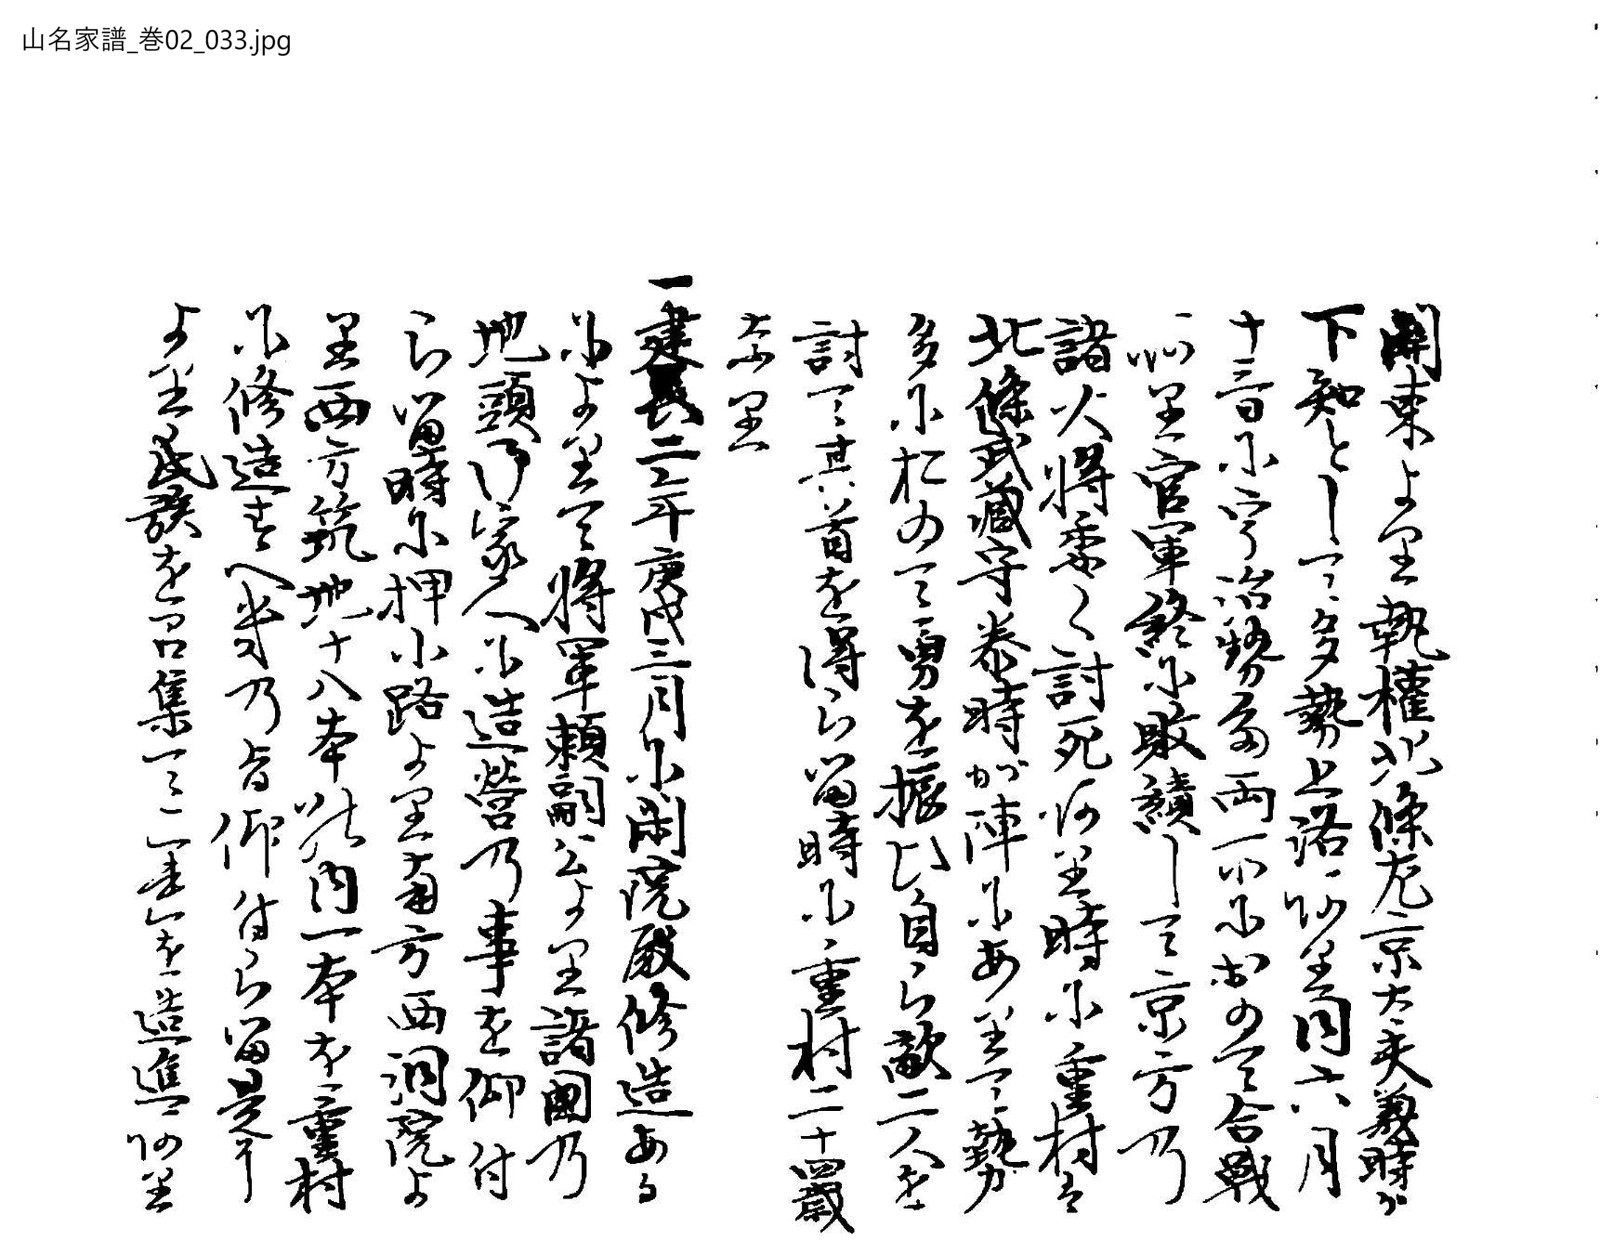 山名家譜_巻02_033.jpg
関東より執権北條左京大夫義時が
下知として多勢上洛あり同六月
十三日に宇治勢多両所におゐて合戦
あり官軍終に敗績して京方の
諸大将悉く討死あり時に重村は
北條武蔵守泰時が陣にあり勢
多におゐて勇を振ひ自ら敵二人を
討て其首を得らる時に重村二十四歳
なり
一建長二年庚戌三月に閑院殿修造ある
によりて将軍頼嗣公より諸国の
地頭御家人に造営の事を仰付
らる時に押小路より南方西洞院よ
り西方筑地十八本此内一本を重村
に修造すへきの旨仰付らる是に
より氏族を召集て一本を造進あり